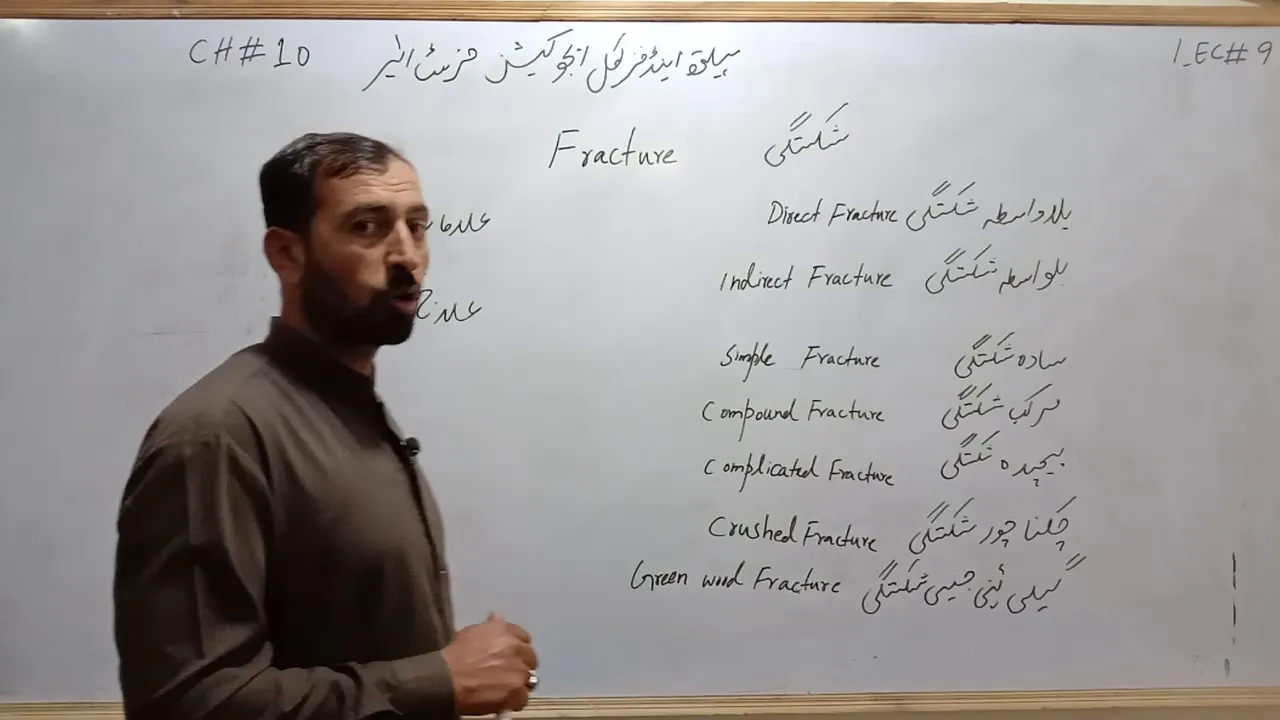 CH # 10 ہیلتھ اینڈ فزیکل ایجوکیشن فرسٹ ائیر LEC # 9
Fracture شکستگی
بلاواسطہ شکستگی Direct Fracture
بلواسطہ شکستگی Indirect Fracture
سادہ شکستگی Simple Fracture
مرکب شکستگی Compound Fracture
پیچیدہ شکستگی Complicated Fracture
چکنا چور شکستگی Crushed Fracture
گیلی ٹہنی جیسی شکستگی Green wood Fracture
علاج